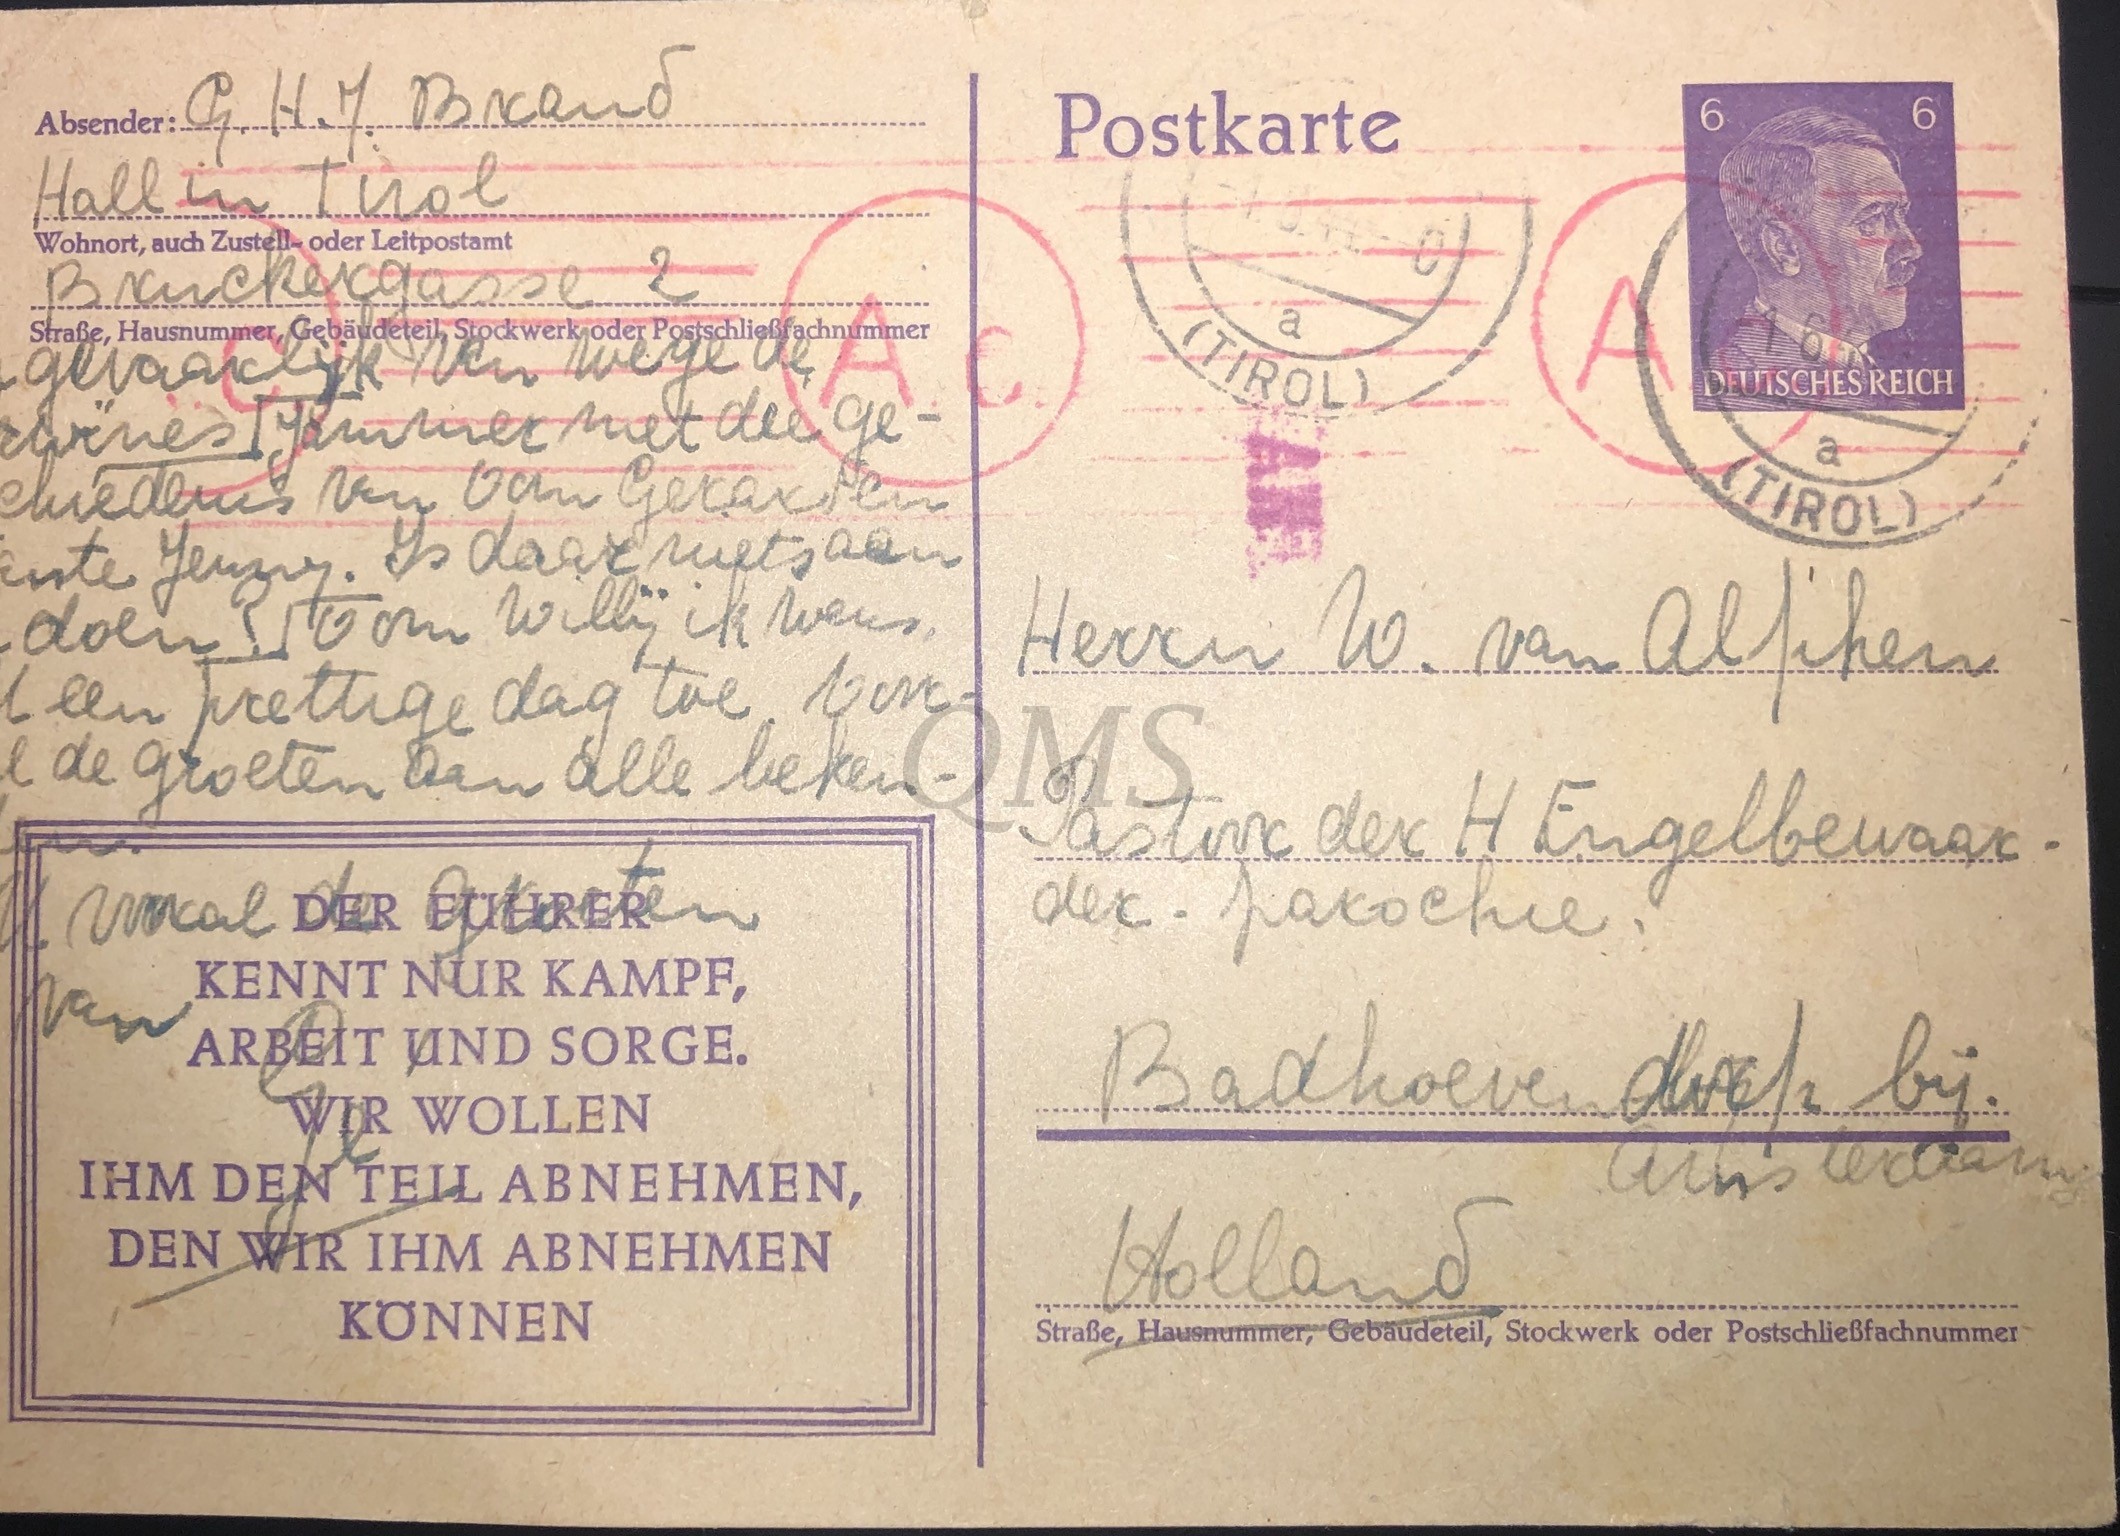 Absender: G. H. J. Brand
Hall in Tirol
Wohnort, auch Zustell- oder Leitpostamt
Bruckergasse 2
Straße, Hausnummer, Gebäudeteil, Stockwerk oder Postschließfachnummer
gevaarlijk van wege de
Jammer met die ge-
chiedenis van Oom Gerard en
ante Jenny. Is daar niets aan
doen? Oom Willij ik wens
een prettige dag toe. Voor-
l de groeten aan alle beken-
en.
vooral de groeten
van
DER FÜHRER
KENNT NUR KAMPF,
ARBEIT UND SORGE.
WIR WOLLEN
IHM DEN TEIL ABNEHMEN,
DEN WIR IHM ABNEHMEN
KÖNNEN
Postkarte
6 6
DEUTSCHES REICH
a
(TIROL)
a
(TIROL)
A c
A
QMS
Herrn W. van Alphen
Pastoor der H Engelbewaar-
der-parochie.
Badhoevendorp bij.
Amsterdam
Holland
Straße, Hausnummer, Gebäudeteil, Stockwerk oder Postschließfachnummer